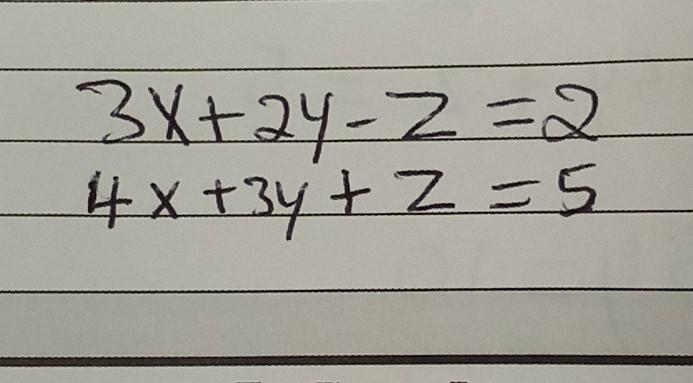 3x+2y-z=2
4x+3y+z=5